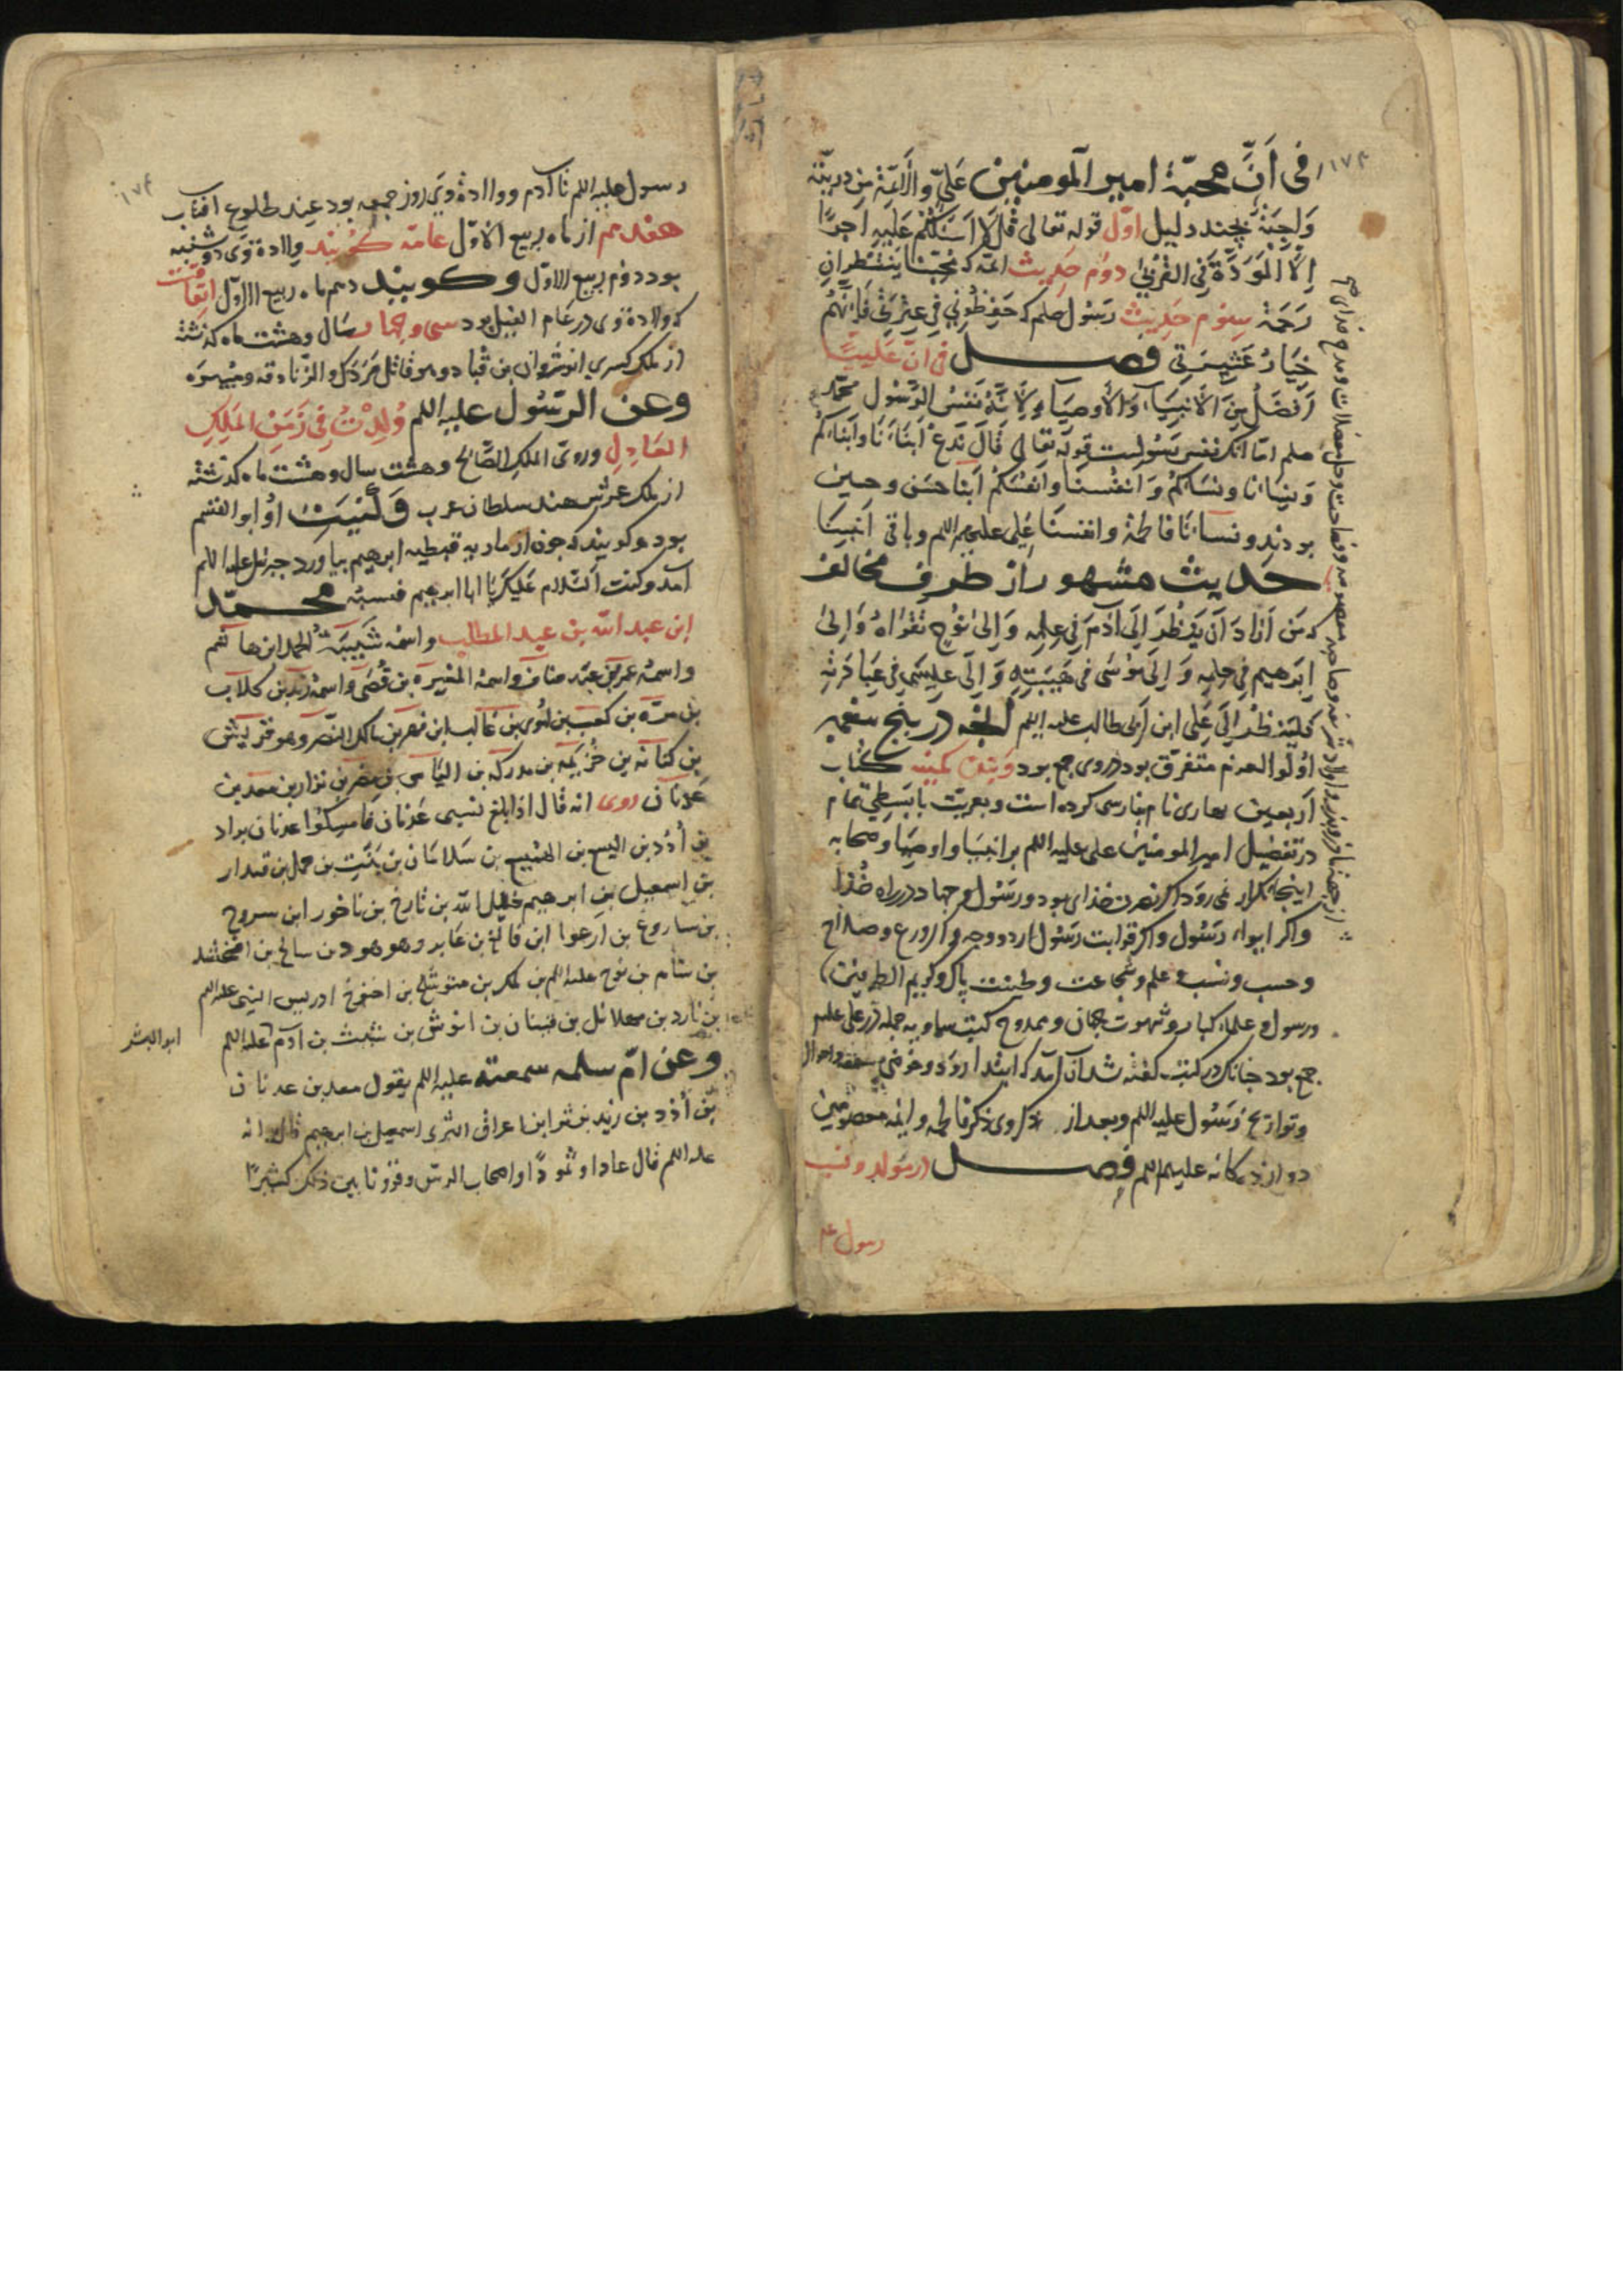 فی اَنَّ محبّة امیر المومنین عَلِیّ والاَئمّة مِن ذریّته
وَاجِبَةٌ بچند دلیل اوّل قوله تعالی قُل لَا اَسْئَلُکُمْ عَلَیهِ اَجرًا
اِلَّا الْمَوَدَّةَ فِی القُرْبٰی دوٌم حَدِیث ائمّه که مُحِبّنا یَنتَظِران
رَحمَة سِوُم حَدِیث رسُول صلم که حَفِظُونِی فِی عِترَتِی فَاِنَّهُم
خِیَارُ عَشِیرَتِی فصل فی انّ عَلِیًّا
اَفضَلُ مِنَ الاَنبِیَاء وَالاَوصِیَاء وَلِاَنَّهُ نَفسُ الرَّسُول محمّد
صلم امّا انک نفس رسُولست قوله تعالی قَالَ نَدعُ اَبنَاءَنَا وَاَبنَاءَکُم
وَنِسَاءنا ونسَاءکُم وَانفُسنا وانفُسَکُم ابنا حسَن وحسین
بودند ونساءنا فاطمة وانفسنَا عَلِی علیهم اللم وباقی اَنبیَا
حدیث مشهور از طرف مخالف
که مَن اَرَادَ اَن یَنظُرَ اِلَی آدَمَ فِی عِلمِه وَاِلیٰ نُوح تَقوَاهُ وَاِلیٰ
اِبرَهیم فِی حِلمِه وَاِلیٰ مُوسٰی فِی هَیبَتِهِ وَاِلَی عِیسٰی فِی عِبَادَتِهِ
فَلیَنظُر اِلَی عَلِی ابن اَبی طالب علیه اللم آنچه در پنج پیغمبر
اُولُوا العزم متفرّق بود در وی جمع بود وَبتین کمینه کتاب
اَربعین بهاری نام بفارسی کرده است وبعربیّت با بَسطِی تمام
در تفضیل امیر المومنین علی علیه اللم بر انبیَا واوصِیَا وصحابه
اینجا تکرار نمی رود اکر نصرت خدای بود ورسُول وجهاد در راه خُدَا
واکر ایواء رسُول واکر قرابت رسُول ازدووجه واکر ورع وصلاح
وحسب ونسب وعلم وشجاعت وطینت پاک وکریم الطرفین
ورسول وعلماء کبار وشهوت جهان وممدوح کتب سماویه جمله در علی علیه
جمع بود چنانک در کتب کفته شد آن آمد که ابتدا رود
وتواریخ رسُول علیه اللم وبعد از ذکر وی ذکر فاطمه وایمّه معصومین
دوازدکانه علیهم اللم فصل در مولد ونسب
رسول عم
رسول علیه اللم تا آدم وولادة وی روز جمعه بود عند طلوع افتاب
هفدهم از ماه ربیع الاوّل عامّه کویند ولادة وی دوشنبه
بود دوم ربیع الاوّل وکویند دهم ماه ربیع الاوّل اتّفاقست
که ولادة وی در عام الفیل بود سی وچهار سَال وهشت ماه کذشته
از ملک کسری انوشروان بن قباد وهو قاتل مَزدَک والزّنادقه
وعن الرسُول علیه اللم وُلِدتُ فِی زَمَنِ المَلِکِ
العَادِلِ وروی الملک الصَّالح وهشت سال وهشت ماه کذشته
از ملک عمر بن هند سلطان عرب وکُنیَت او ابو القسم
بود وکویند که چون از ماریه قبطیه ابرهیم بیاورد جبرئیل علیه اللم
آمد وکفت السّلام عَلیک یَا ابا ابرهیم فنسبه محمّد
ابن عبد الله بن عبد المطلب واسمُه شَیبَةُ الحمد ابن هاشم
واسمُه عمر بن عبد مناف واسمُه المغیره بن قُصَی واسمُه زید بن کلاب
بن مرّه بن کعب بن لوی بن غالب ابن فهر بن مالک النضر وهو قریش
بن کنانه بن خُزَیمَه بن مدرکه بن الیاس بن مضر بن نزار بن معد بن
عَدنان روی انه قال اذا بلغ نسبی عَدنان فامسِکُوا عدنان بن اد
بن اُدَد بن الیسع بن الهمیسع بن سَلامان بن نَبت بن حمل بن قیدار
بن اسمعیل بن ابرهیم خلیل الله بن تارخ بن ناخور ابن سروح
بن ساروغ بن ارعوا ابن فالغ بن عابر وهو هود بن سالخ بن ارفخشد
بن سام بن نوح علیه اللم بن لمک بن متوشلخ بن اخنوخ ادریس النبی علیه اللم
بن یارد بن مهلائل بن قینان بن انوش بن شیث بن آدم علیه اللم
ابو البشر
وعن امّ سلمه سمعته علیه اللم یقول معد بن عدنان
بن اُدَد بن زید بن ثرا ابن اعراق الثری اسمعیل بن ابرهیم قال انه
علیه اللم قال عادا وثمودًا واصحاب الرسّ وقرونا بین ذلک کثیرًا